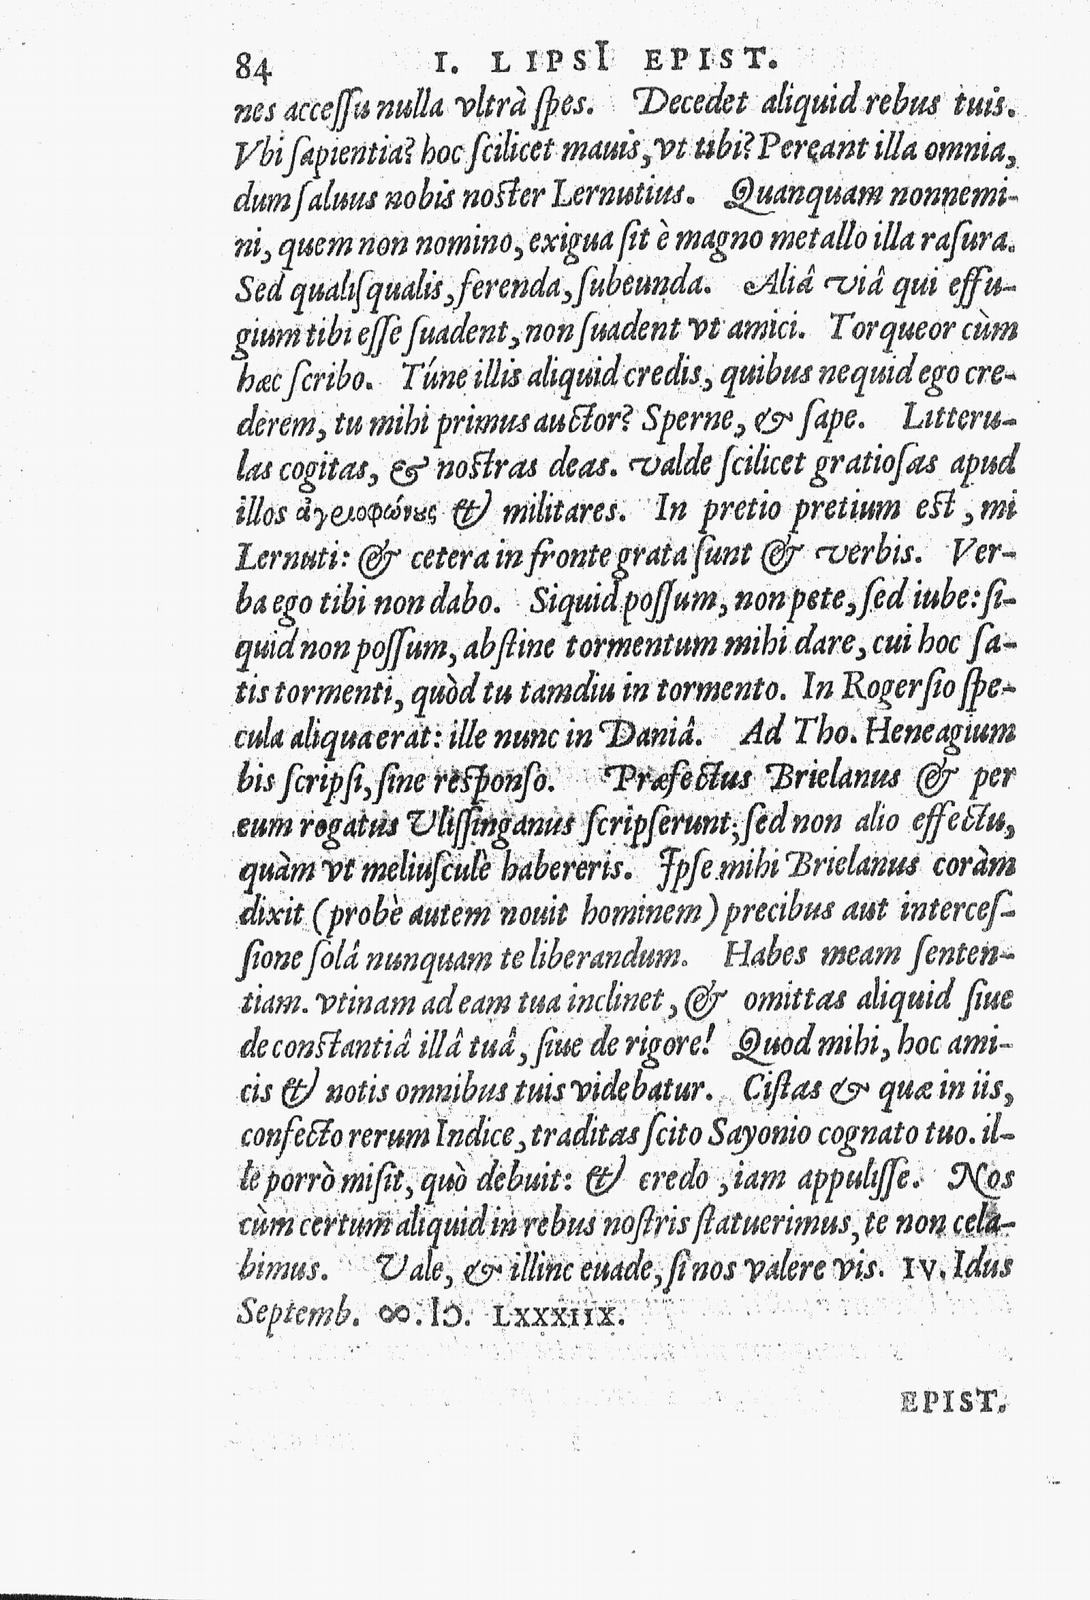 84 I. LIPSI EPIST.
nes accessu nulla vltrà spes. Decedet aliquid rebus tuis.
Vbi sapientia? hoc scilicet mauis, vt tibi? Pereant illa omnia,
dum saluus nobis noster Lernutius. Quanquam nonnemi-
ni, quem non nomino, exigua sit è magno metallo illa rasura.
Sed qualisqualis, ferenda, subeunda. Aliâ viâ qui effu-
gium tibi esse suadent, non suadent vt amici. Torqueor cùm
hæc scribo. Túne illis aliquid credis, quibus ne quid ego cre-
derem, tu mihi primus auctor? Sperne, & sape. Litteru-
las cogitas, & nostras deas. valde scilicet gratiosas apud
illos ἀγριοφώνους & militares. In pretio pretium est, mi
Lernuti: & cetera in fronte grata sunt & verbis. Ver-
ba ego tibi non dabo. Siquid possum, non pete, sed iube: si-
quid non possum, abstine tormentum mihi dare, cui hoc sa-
tis tormenti, quòd tu tamdiu in tormento. In Rogersio spe-
cula aliqua erat: ille nunc in Daniâ. Ad Tho. Heneagium
bis scripsi, sine responso. Præfectus Brielanus & per
eum rogatus Vlissinganus scripserunt; sed non alio effectu,
quàm vt meliusculè habereris. Ipse mihi Brielanus coràm
dixit (probè autem nouit hominem) precibus aut interces-
sione solâ nunquam te liberandum. Habes meam senten-
tiam. vtinam ad eam tua inclinet, & omittas aliquid siue
de constantiâ illâ tuâ, siue de rigore! Quod mihi, hoc ami-
cis & notis omnibus tuis videbatur. Cistas & quæ in iis,
confecto rerum Indice, traditas scito Sayonio cognato tuo. il-
le porrò misit, quò debuit: & credo, iam appulisse. Nos
cùm certum aliquid in rebus nostris statuerimus, te non cela-
bimus. Vale, & illinc euade, si nos valere vis. IV. Idus
Septemb. ∞. IↃ. LXXXIIX.
EPIST.